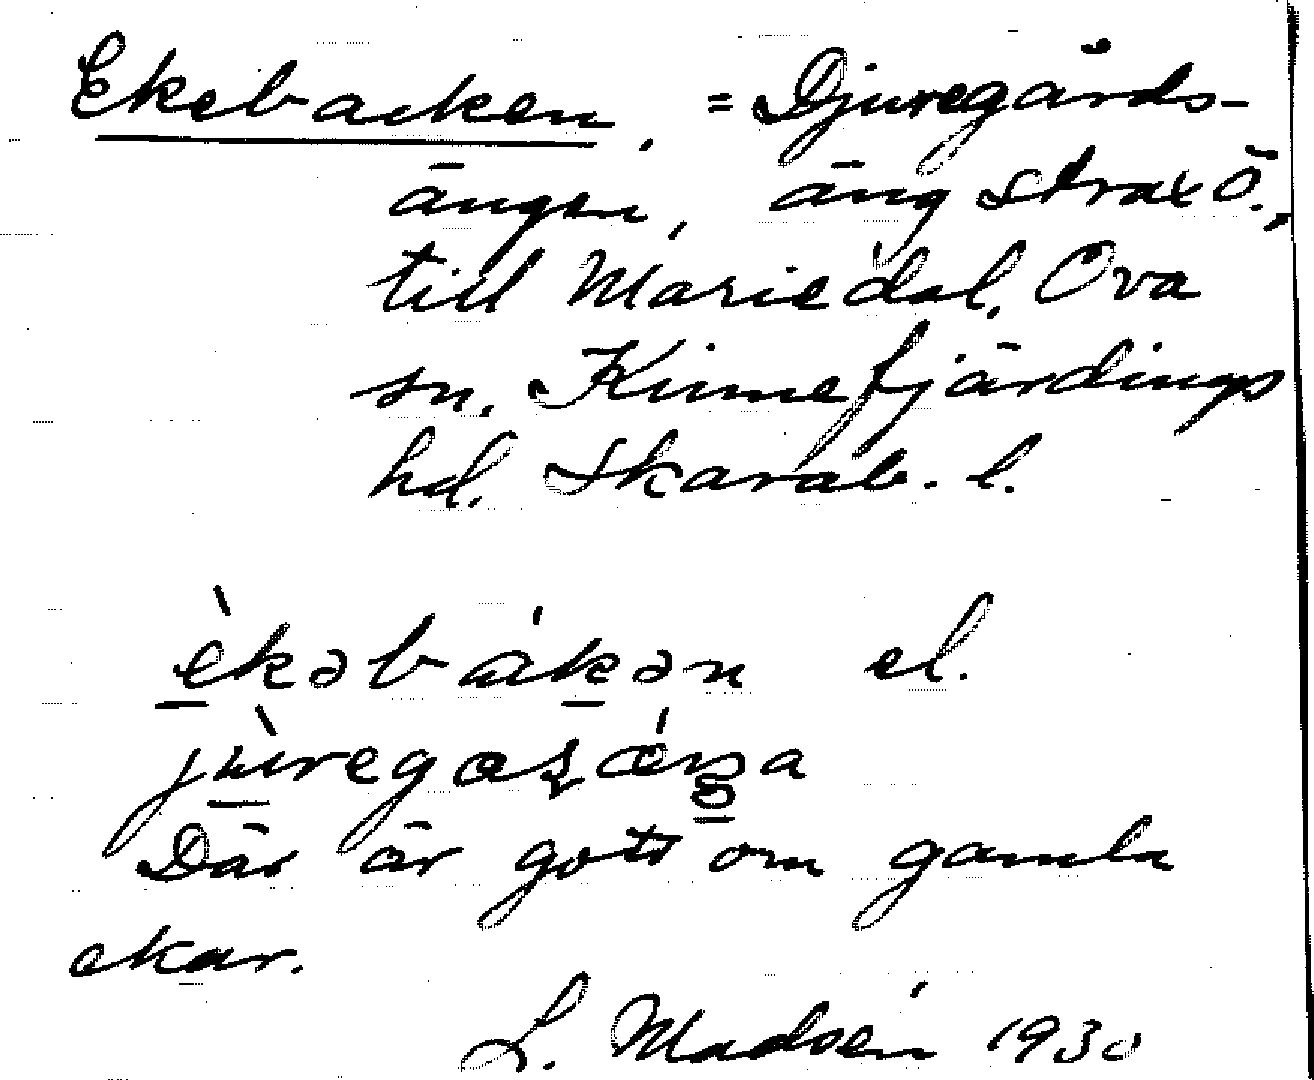 Ekebacken, = Djuregårds-
ängen, äng strax ö.,
till Mariedal, Ova
sn, Kinnefjärdings
hd. Skarab. l.
èkəbákən el.
jùregaʂáŋa
Där är gott om gamla
ekar.
L. Madsén 1930